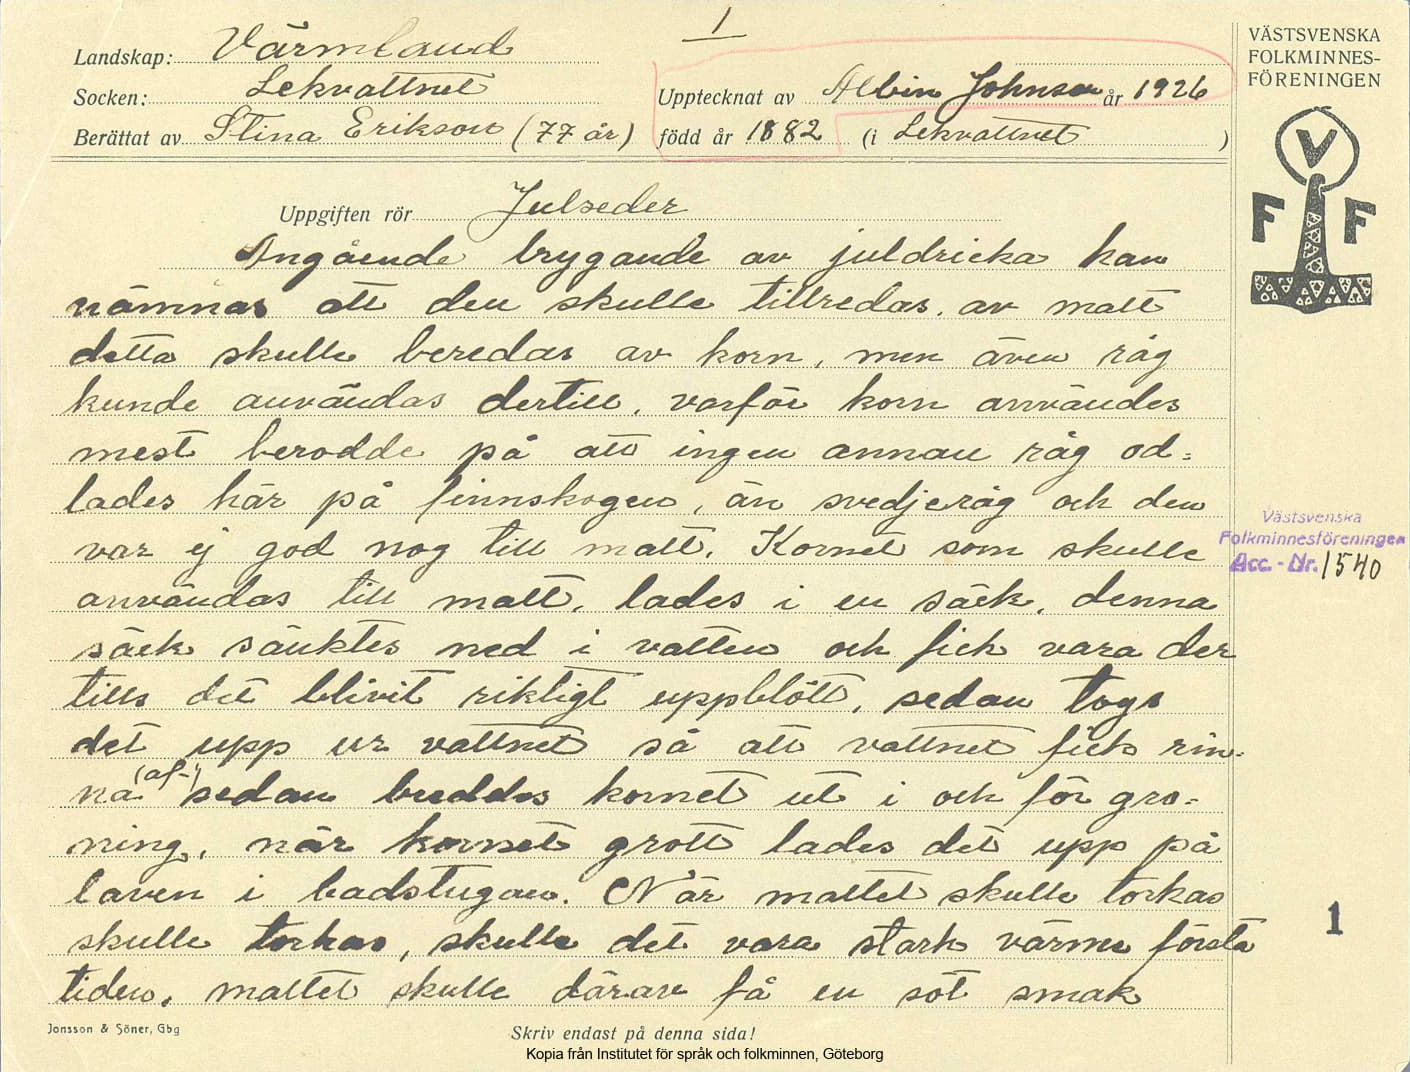 1
Landskap: Värmland
Socken: Lekvattnet
Berättat av Stina Erikson (77 år)
Upptecknat av Albin Johnson år 1926
född år 1882 (i Lekvattnet )
VÄSTSVENSKA
FOLKMINNES-
FÖRENINGEN
V
F F
Uppgiften rör Julseder
Angående brygande av juldricka kan
nämnas att den skulle tillredas. av malt
detta skulle beredas av korn, men även råg
kunde användas dertill, varför korn användes
mest berodde på att ingen annan råg od=
lades här på finnskogen, än svedjeråg och den
var ej god nog till malt. Kornet som skulle
användas till malt, lades i en säck, denna
säck sänktes ned i vatten och fick vara der
tills det blivit riktigt uppblött, sedan togs
det upp ur vattnet så att vattnet fick rin=
na (af-) sedan breddes kornet ut i och för gro=
ning, när kornet grott lades det upp på
laven i badstugan. När maltet skulle torkas
skulle torkas, skulle det vara stark värme första
tiden, maltet skulle därav få en söt smak
Västsvenska
Folkminnesföreningen
Acc.-Nr. 1540
1
Jonsson & Söner, Gbg
Skriv endast på denna sida!
Kopia från Institutet för språk och folkminnen, Göteborg